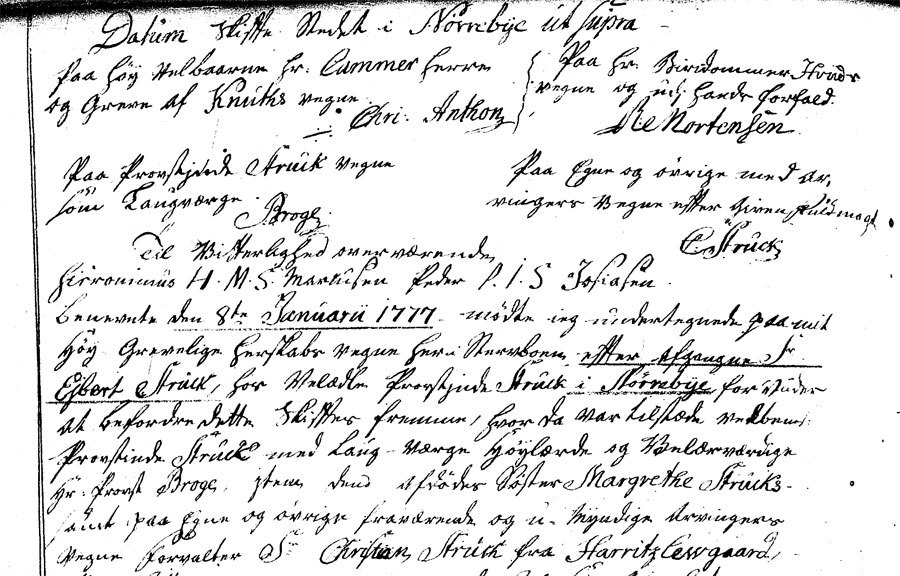 Datum Skifte Stedet i Nörrebÿe ut supra
Paa höy Velbaarne hr. Cammer herre
og Greve af Knuths vegne
Chri. Anthon
Paa hr. Birkdommer
vegne og udj hands forfald.
Mortensen
Paa Provstinde Struck vegne
som Laugværge
Broge
Paa Egne og övrige med ar,
vingers Vegne efter given fuldmagt
C. Struck
Til Vitterlighed overværende
Hieronimus H. M. S. Markusen Peder P. I. S Josiasen
benevnte den 8te Januarii 1777 mödte ieg undertegnede paa mit
Höy Grevelige herskabs vegne her i Sterboen efter afgangne Sr
Eibert Struck, hos Velædle Provstinde Struck i Nörrebÿe for viider
at befordre dette Skiftes fremme, hvor da var tilstæde velbem:
Provstinde Struck med Laug-Værge Höylærde og Velærværdige
Hr. Provst Broge, item dend afdödes Söster Margrethe Strucks
samt paa Egne og övrige fraværende og u-Myndige Arvingers
Vegne Forvalter Sr Christian Struck fra Harritzlewgaard,